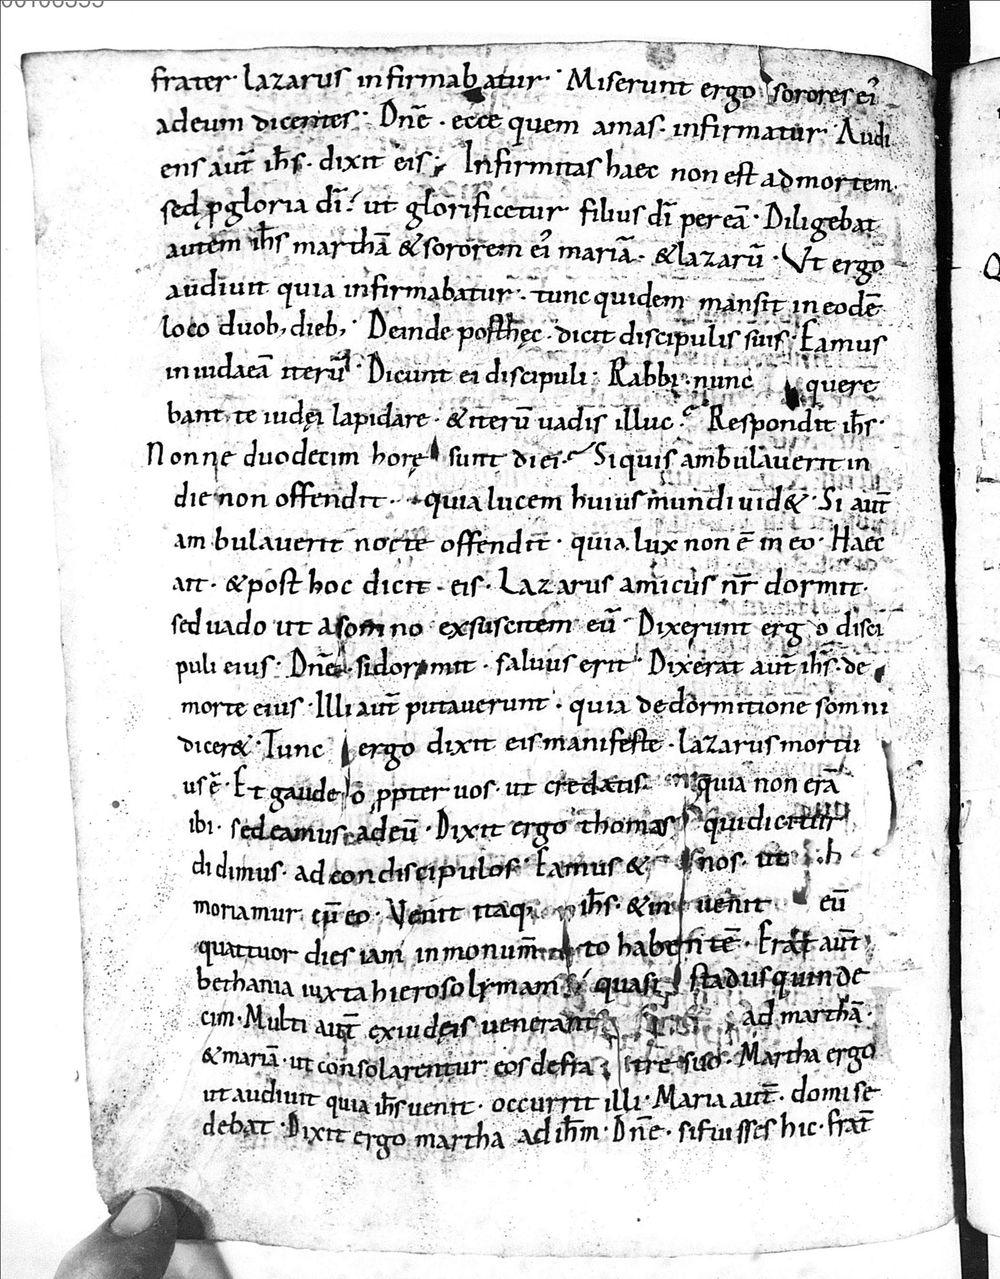 frater· lazarus infirmabatur· Miserunt ergo sorores ei᾽
adeum dicentes· Dn̄e· ecce quem amas· infirmatur· Audi
ens aut̄ ih̄s· dixit eis· Infirmitas haec non est admortem·
sed ꝓgloria dī· ut glorificetur filius dī per eā· Diligebat
autem ih̄s marthā & sororem ei᾽ mariā· & lazarū· Ut ergo
audiuit quia infirmabatur· tunc quidem mansit in eodē
loco duob; dieb;· Deinde posthęc· dicit discipulis suis· Eamus
iniudaeā iterū· Dicunt ei discipuli· Rabbi· nunc quere
bant te iudęi lapidare· & iterū uadis illuc· Respondit ih̄s·
Nonne duodecim horę sunt diei· Siquis ambulauerit in
die non offendit· quia lucem huius mundi uid&· Si aut̄
ambulauerit nocte offendit· quia lux non ē in eo· Haec
ait· & post hoc dicit· eis· Lazarus amicus nr̄ dormit·
sed uado ut asomno exsuscitem eū· Dixerunt ergo disci
puli eius· Dn̄e· sidormit· saluus erit· Dixerat aut̄ ih̄s· de
morte eius· Illi aut̄ putauerunt· quia dedormitione somni
dicer&· Tunc ergo dixit eis manifeste· lazarus mortu
us ē· Et gaudeo ꝓpter uos· ut credatis· quia non erā
ibi· sed eamus adeū· Dixit ergo thomas quidicitur
didimus· ad condiscipulos· Eamus & nos· ut
moriamur cū eo· Venit itaq; ih̄s· & inuenit eū
quattuor dies iam inmonum̄to habentē· Erat aut̄
bethania iuxta hierosolymam quasi stadiis quinde
cim· Multi aut̄ exiudęis uenerant ad marthā·
& mariā· ut consolarentur eos defratre suo· Martha ergo
ut audiuit quia ih̄s uenit· occurrit illi· Maria aut̄· domi se
debat· Dixit ergo martha ad ih̄m· Dn̄e· si fuisses hic· frat̄